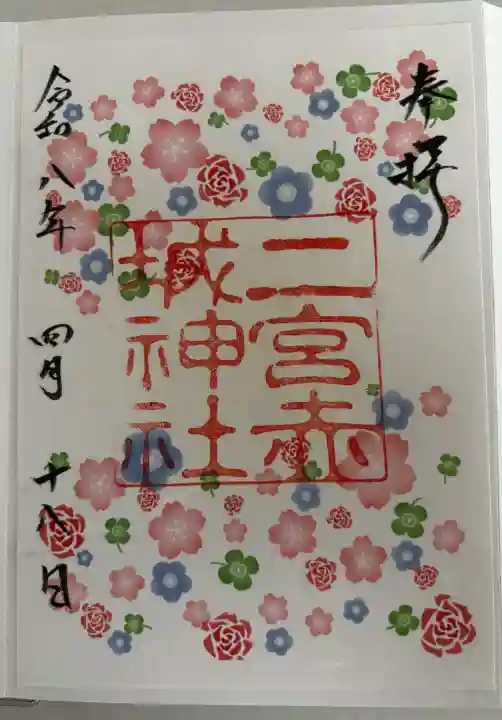 奉拝
二宮赤
城神社
令和八年 四月 十八日